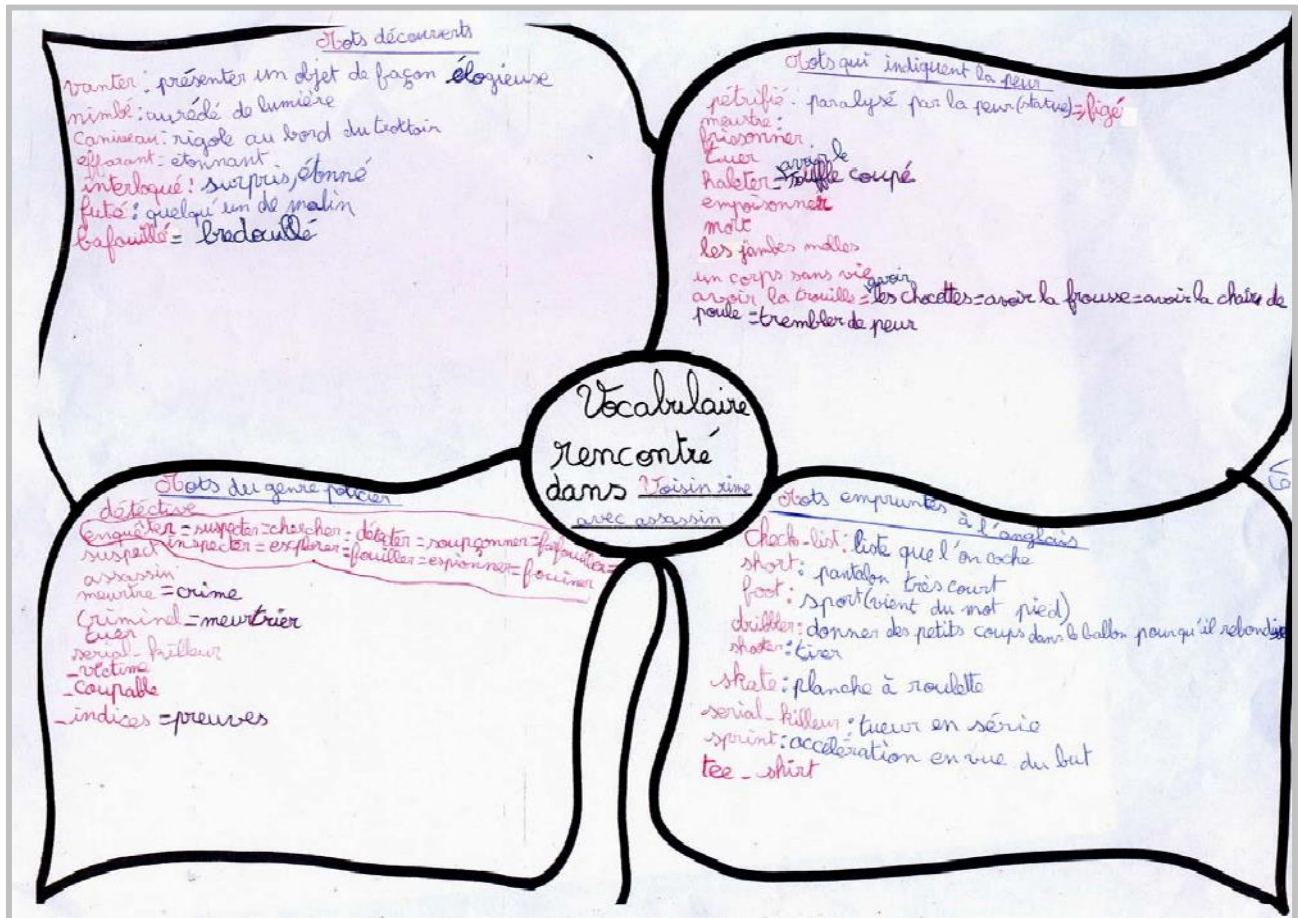 Mots découverts
vanter: présenter un objet de façon élogieuse
nimbé: aurédé de lumière
Caniveau: rigole au bord du trottoir
effarant: étonnant
interloqué: surpris, étonné
futé: quelqu'un de malin
bafouillé = bredouillé
Mots qui indiquent la peur
pétrifié: paralysé par la peur (statue) = figé
meurtre:
frissonner.
tuer
haleter = avoir le souffle coupé
empoisonner
mort
les jambes molles
un corps sans vie
avoir la trouille = avoir les chocottes = avoir la frousse = avoir la chaire de
poule = trembler de peur
Vocabulaire
rencontré
dans Voisin rime
avec assassin
Mots du genre policier
détéctive
enquêter = suspecter = chercher = détecter = soupçonner = farfouiller =
inspecter = explorer = fouiller = espionner = fouiner
suspect
assassin
meurtre = crime
Criminel = meurtrier
tuer
serial-killeur
-victime
-coupable
-indices = preuves
Mots empruntés à l'anglais
Check-list: liste que l'on coche
short: pantalon très court
foot: sport (vient du mot pied)
dribbler: donner des petits coups dans le ballon pour qu'il rebondisse
shooter: tirer
skate: planche à roulette
serial-killeur: tueur en série
sprint: accélération en vue du but
tee-shirt